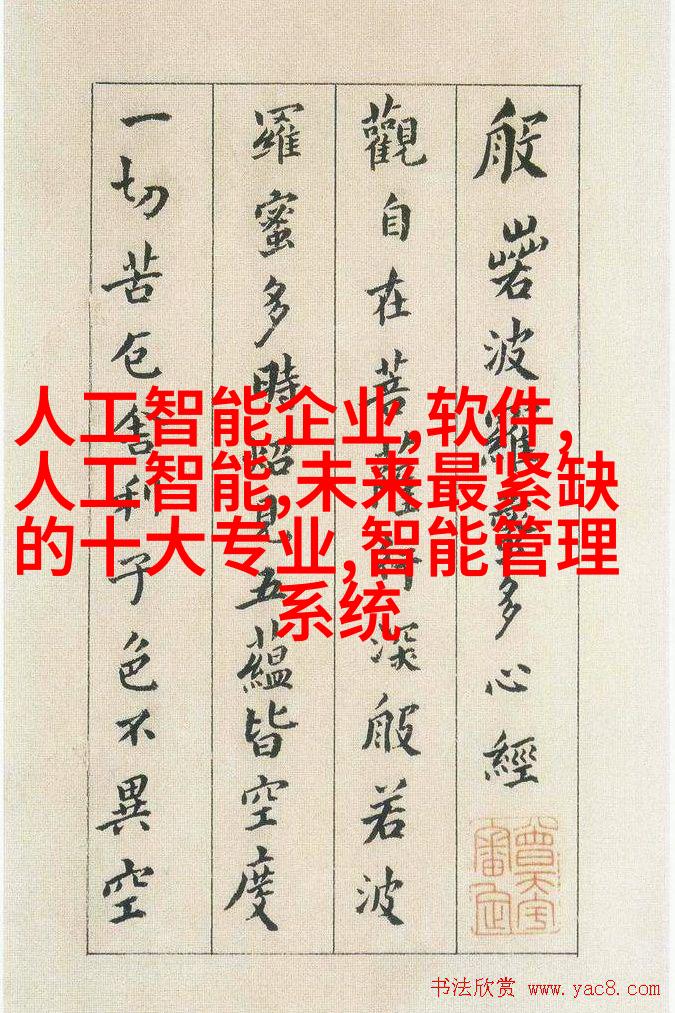 般若波羅蜜多心經
觀自在菩薩行深般若波
羅蜜多時照見五蘊皆空度
一切苦厄舍利子色不異空
人工智能企业,软件,
人工智能,未来最紧缺
的十大专业,智能管理
系统
书法欣赏 www.yac8.com